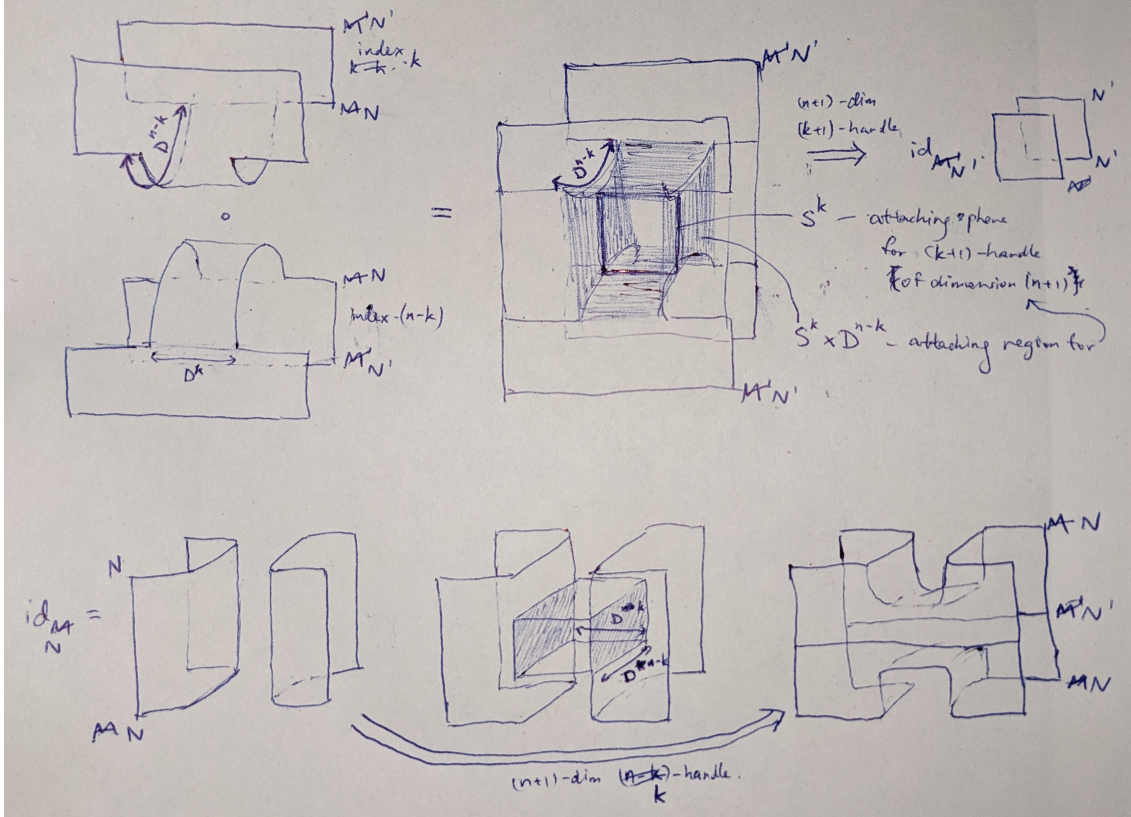 N'
index
k
N
D^{n-k}
∘
N
index-(n-k)
N'
D^k
=
N'
D^{n-k}
N'
(n+1)-dim
(k+1)-handle
⟹
id_{N'}
N'
N'
S^k — attaching sphere
for (k+1)-handle
of dimension (n+1)
S^k × D^{n-k} — attaching region for
id_N =
N
N
D^k
D^{n-k}
N
N'
N
(n+1)-dim k-handle.